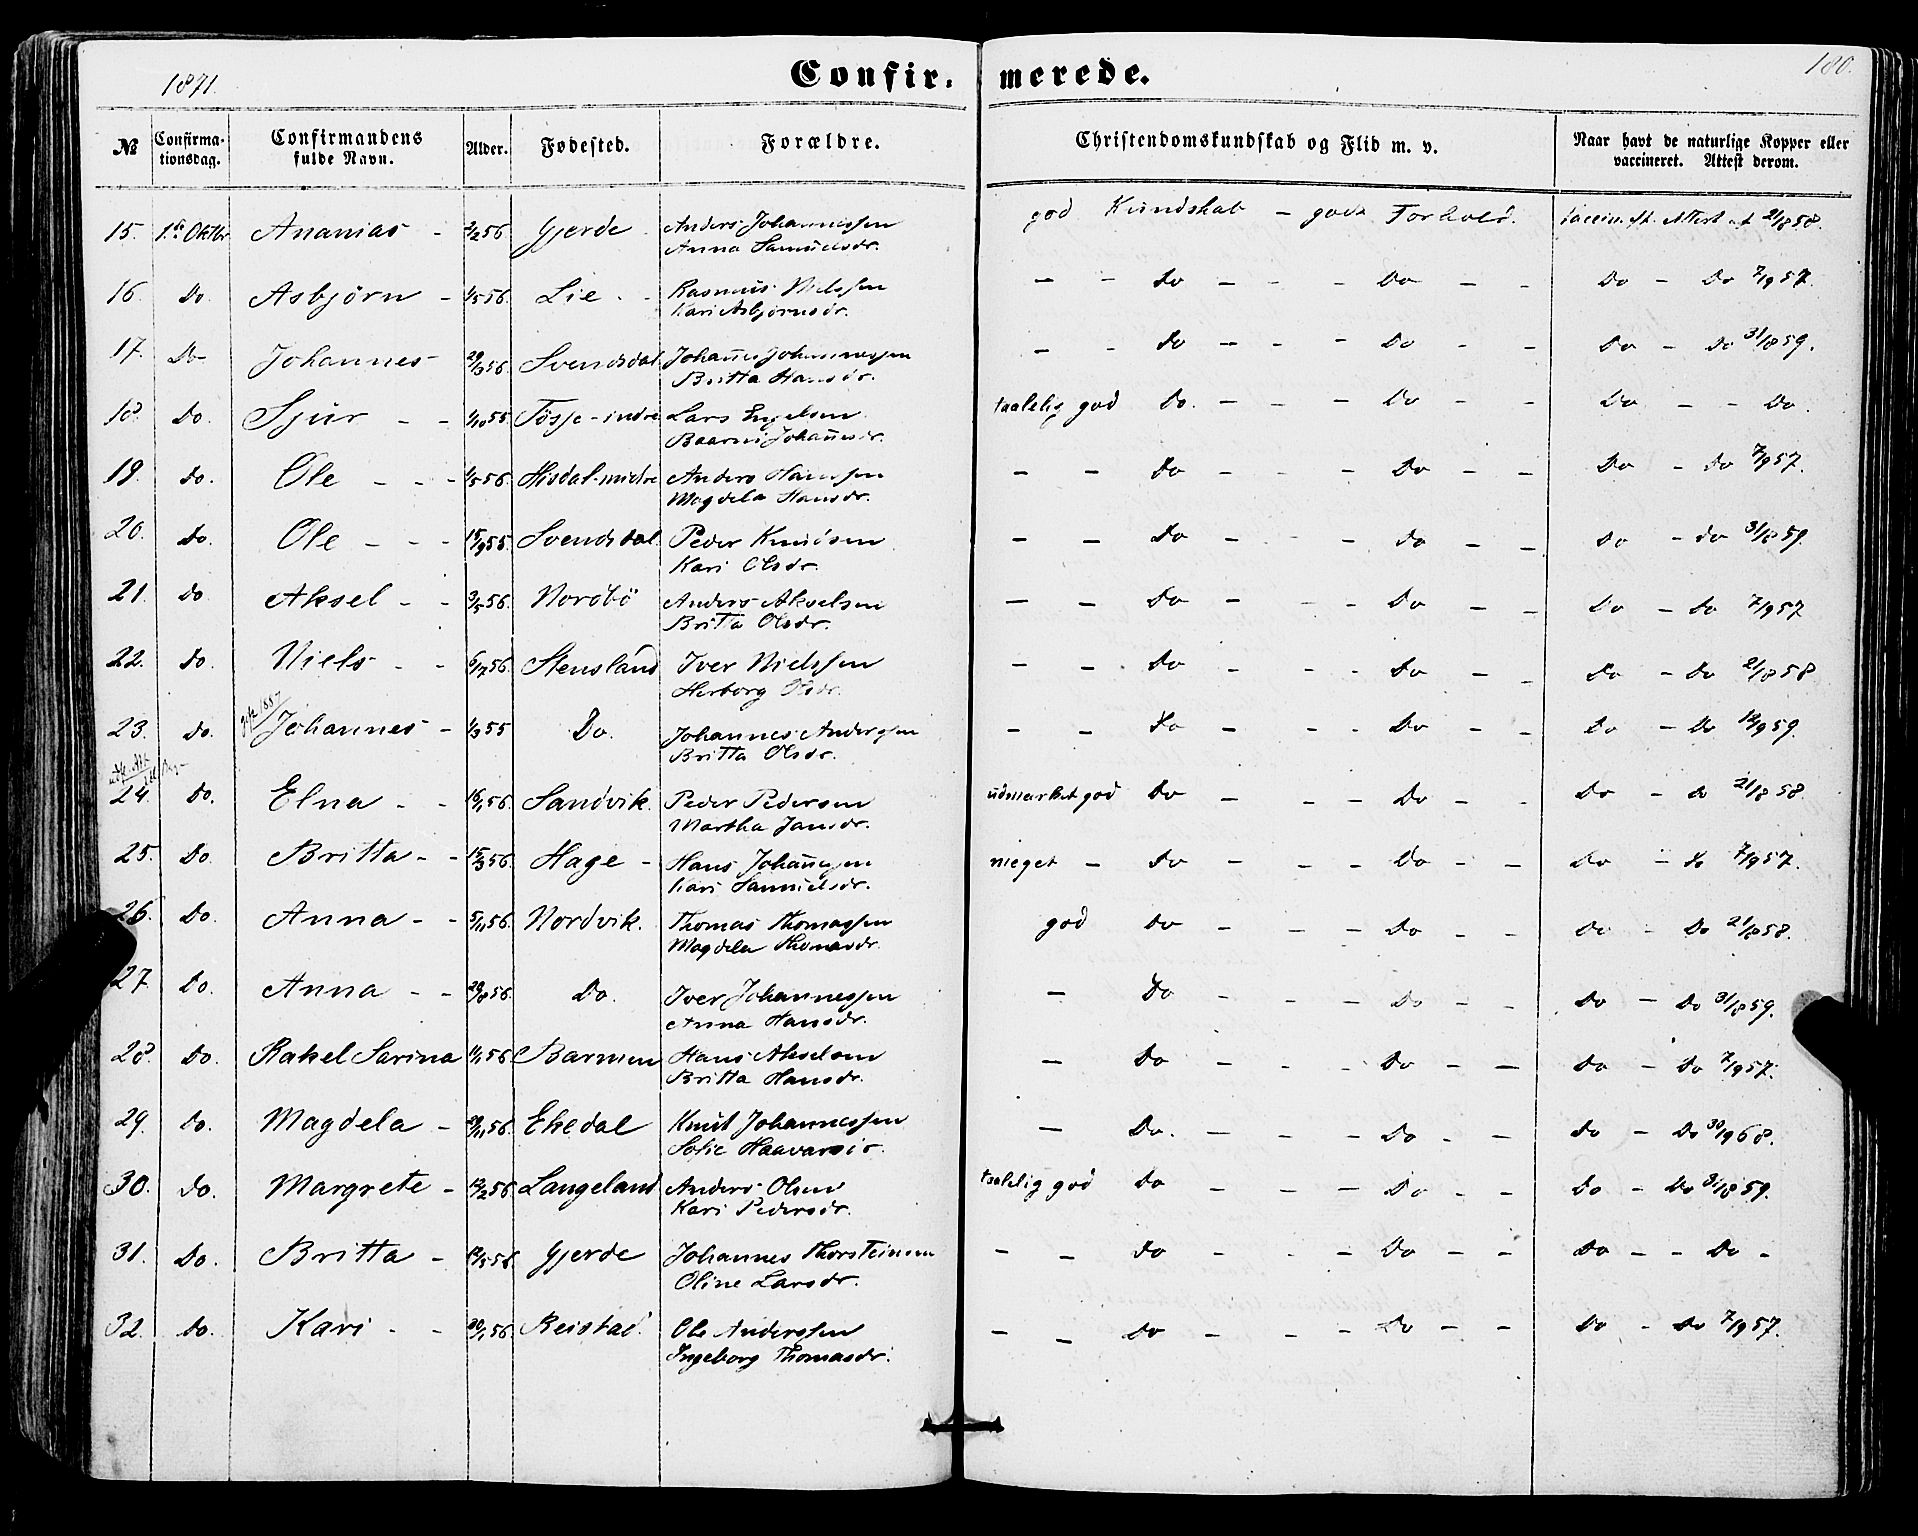 1871.
Confir- merede.
180.
№ Confirma-tionsdag. Confirmandens fulde Navn. Alder. Fødested. Forældre. Christendomskundskab og Flid m. v. Naar havt de naturlige Kopper eller vaccineret. Attest derom.
15. 1ste Oktbr Ananias - 2/2 56 Gjerde - Anders Johannessen god Kundskab - godt Forhold. vaccin. ft. Attest af 21/8 58.
Anna Samuelsdr.
16. Do Asbjörn - 1/5 56. Lie - - Rasmus Nielssen - - Do - - Do - - Do - Do 7/9 57.
Kari Asbjørnsdr.
17. Do Johannes 29/3 56. Svendsdal Johannes Johannessen - - Do - - - Do - - Do - Do 31/8 59.
Britta Hansdr.
18. Do. Sjur - - 1/10 55. Tösse-indre Lars Engelsen taalelig god Do. - - - Do - - Do - - Do.
Baarni Johannesdr.
19. Do. Ole - - - 1/5 56. Hisdal-midre Anders Hansen - - Do - - - Do - - Do - Do 7/9 57.
Magdela Hansdr.
20. Do. Ole - - - 15/9 55. Svendsdal Peder Knudsen - - Do - - - Do - - Do - Do 31/8 59.
Kari Olsdr.
21. Do Aksel - - 3/5 56. Nordbö Anders Akselsen - - Do - - - Do - - Do - Do 7/9 57
Britta Olsdr.
22. Do. Niels - - 6/7 56. Stensland Iver Nielssen - - Do - - - Do - - Do - Do 21/8 58
Herborg Olsdr.
23. Do. Johannes - 1/9 55 Do. Johannes Anderssen - - Do - - - Do - - Do - Do 12/9 59.
Britta Olsdr.
24. Do. Elna - - 16/1 56. Sandvik. Peder Pedersen udmærket god Do - - - Do - - Do - Do 21/8 58.
Martha Jansdr.
25. Do. Britta - - 15/3 56. Hage - Hans Johannessen meget - Do - - - Do - - Do - Do 7/9 57.
Kari Samuelsdr.
26. Do. Anna - - 5/11 56. Nordvik. Thomas Thomassen god Do - - - Do - - Do - Do 21/8 58.
Magdela Thomasdr.
27. Do. Anna - - 29/8 56. Do. Iver Johannessen - Do - - - Do - - Do - Do 31/8 59.
Anna Hansdr.
28. Do. Rakel Sarina 11/1 56 Barmen Hans Akselsen - Do - - - Do - - Do - Do 7/9 57.
Britta Hansdr.
29. Do. Magdela - 29/11 56. Ekedal Knut Johannessen - Do. - - - Do - - Do - Do 30/9 68.
Sofie Haavarsdr.
30. Do. Margrete - 12/2 56 Langeland Anders Olsen taalelig god Do - - - Do - - Do - Do 31/8 59.
Kari Pedersdr.
31. Do. Britta - 12/5 56. Gjerde Johannes Thorsteinsen - - Do - - - Do - - Do - - Do -
Oline Larsdr.
32. Do. Kari - - 30/1 56 Reistad. Ole Anderssen - - Do - - - Do - - Do - Do 7/9 57.
Ingeborg Thomasdr.